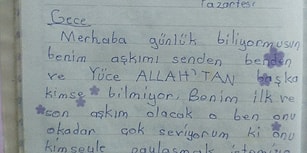 Pazartesi
Gece
Merhaba günlük biliyormusun
benim aşkımı senden benden
ve Yüce ALLAH'TAN başka
kimse bilmiyor. Benim ilk ve
son aşkım olacak o ben onu
okadar çok seviyorum ki onu
kimseyle paylaşmak istemiyo